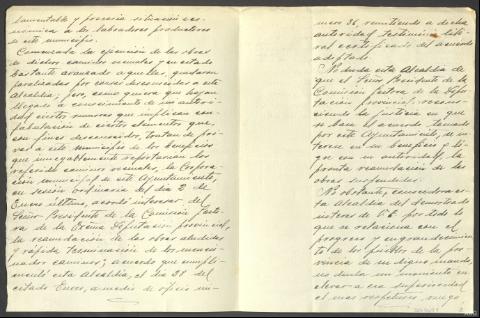 lamentable y precaria situación eco-
nómica a los labradores productores
de este municipio.
Comenzada la ejecución de las obras
de dichos caminos vecinales y en estado
bastante avanzado aquellas, quedaron
paralizadas por causas desconocidas a esta
Alcaldía; pero, como quiera que hayan
llegado a conocimiento de mi autori-
dad ciertos rumores que implican con-
fabulación de ciertos elementos que,
con fines desconocidos, tratan de pri-
var a este municipio de los beneficios
que innegablemente reportarían los
referidos caminos vecinales, la Corpora-
ción municipal de este Ayuntamiento,
en sesión ordinaria del día 2 de
Enero último, acordó interesar del
Señor Presidente de la Comisión Gesto-
ra de la Excma Diputación provincial,
la reanudación de las obras aludidas
y rápida terminación de los mencio-
nados caminos; acuerdo que cumpli-
mentó esta Alcaldía, el día 28 del
citado Enero, a medio de oficio nú-
mero 36, remitiendo a dicha
autoridad testimonio lite-
ral certificado del acuerdo
adoptado.
No duda esta Alcaldía de
que el Señor Presidente de la
Comisión Gestora de la Dipu-
tación provincial, recono-
ciendo la justicia en que
se basa el acuerdo tomado
por este Ayuntamiento, se in-
terese en su beneficio y
con su autoridad, la
pronta reanudación de las
obras suspendidas.
No obstante, conocedora es-
ta Alcaldía del demostrado
interés de V.E. por todo lo
que se relaciona con el
progreso y engrandecimien-
to de los pueblos de la pro-
vincia de su digno mando,
no duda un momento en
elevar a esa superioridad
el mas respetuoso ruego